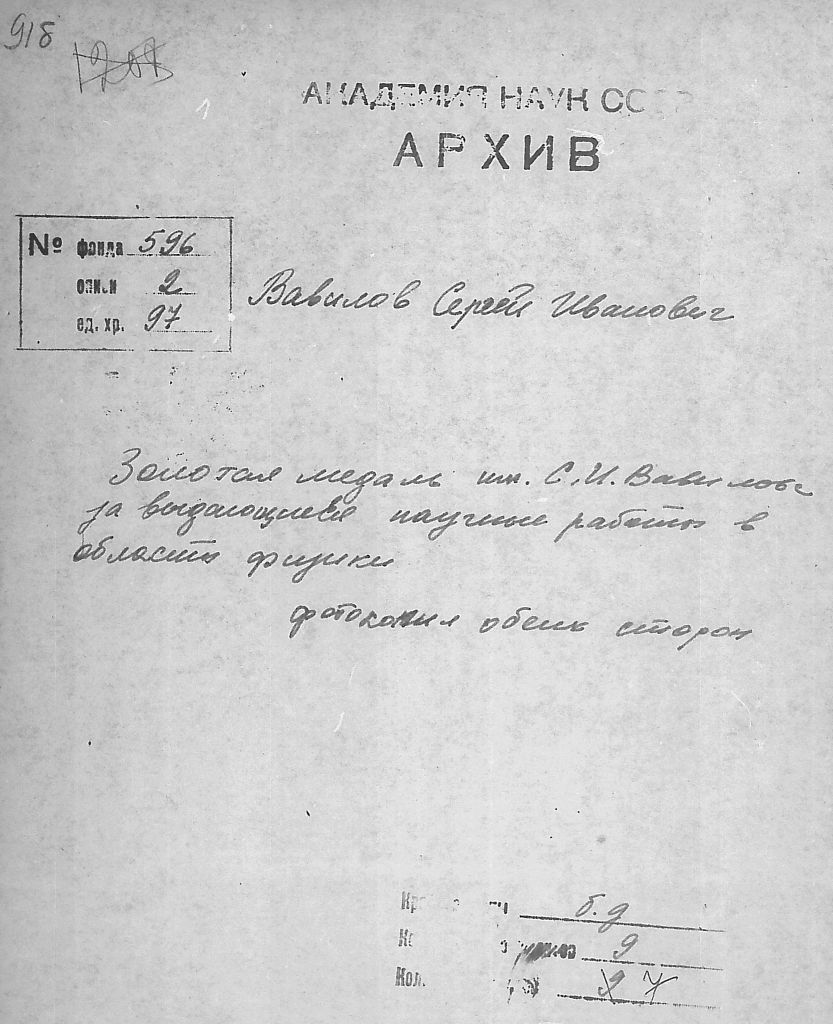 918
АКАДЕМИЯ НАУК СССР
АРХИВ
№ фонда 596
описи 2
ед. хр. 97
Вавилов Сергей Иванович
Золотая медаль им. С.И. Вавилова
за выдающиеся научные работы в
области физики
фотокопия обеих сторон
б.д
9
7